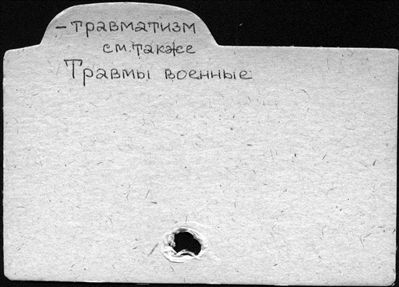 – травматизм
см. также
Травмы военные